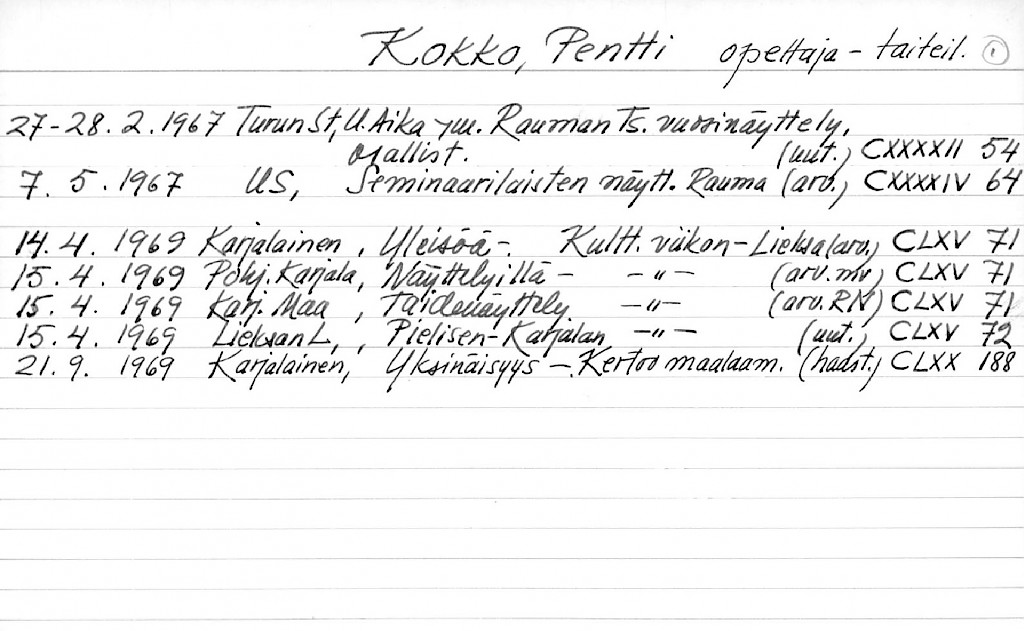 Kokko, Pentti opettaja - taiteil. 1
27-28. 2. 1967 Turun St, U. Aika ym. Rauman Ts. vuosinäyttely,
osallist. (uut.) CXXXXII 54
7. 5. 1967 US, Seminaarilaisten näytt. Rauma (arv.) CXXXXIV 64
14. 4. 1969 Karjalainen, Yleisöä -. Kultt. viikon - Lieksa (arv.) CLXV 71
15. 4. 1969 Pohj. Karjala, Näyttelyillä - - " - (arv. mv) CLXV 71
15. 4. 1969 Karj. Maa, Taidenäyttely - " - (arv. RN) CLXV 71
15. 4. 1969 Lieksan L., Pielisen-Karjalan - " - (uut.) CLXV 72
21. 9. 1969 Karjalainen, Yksinäisyys -. Kertoo maalaam. (haast.) CLXX 188